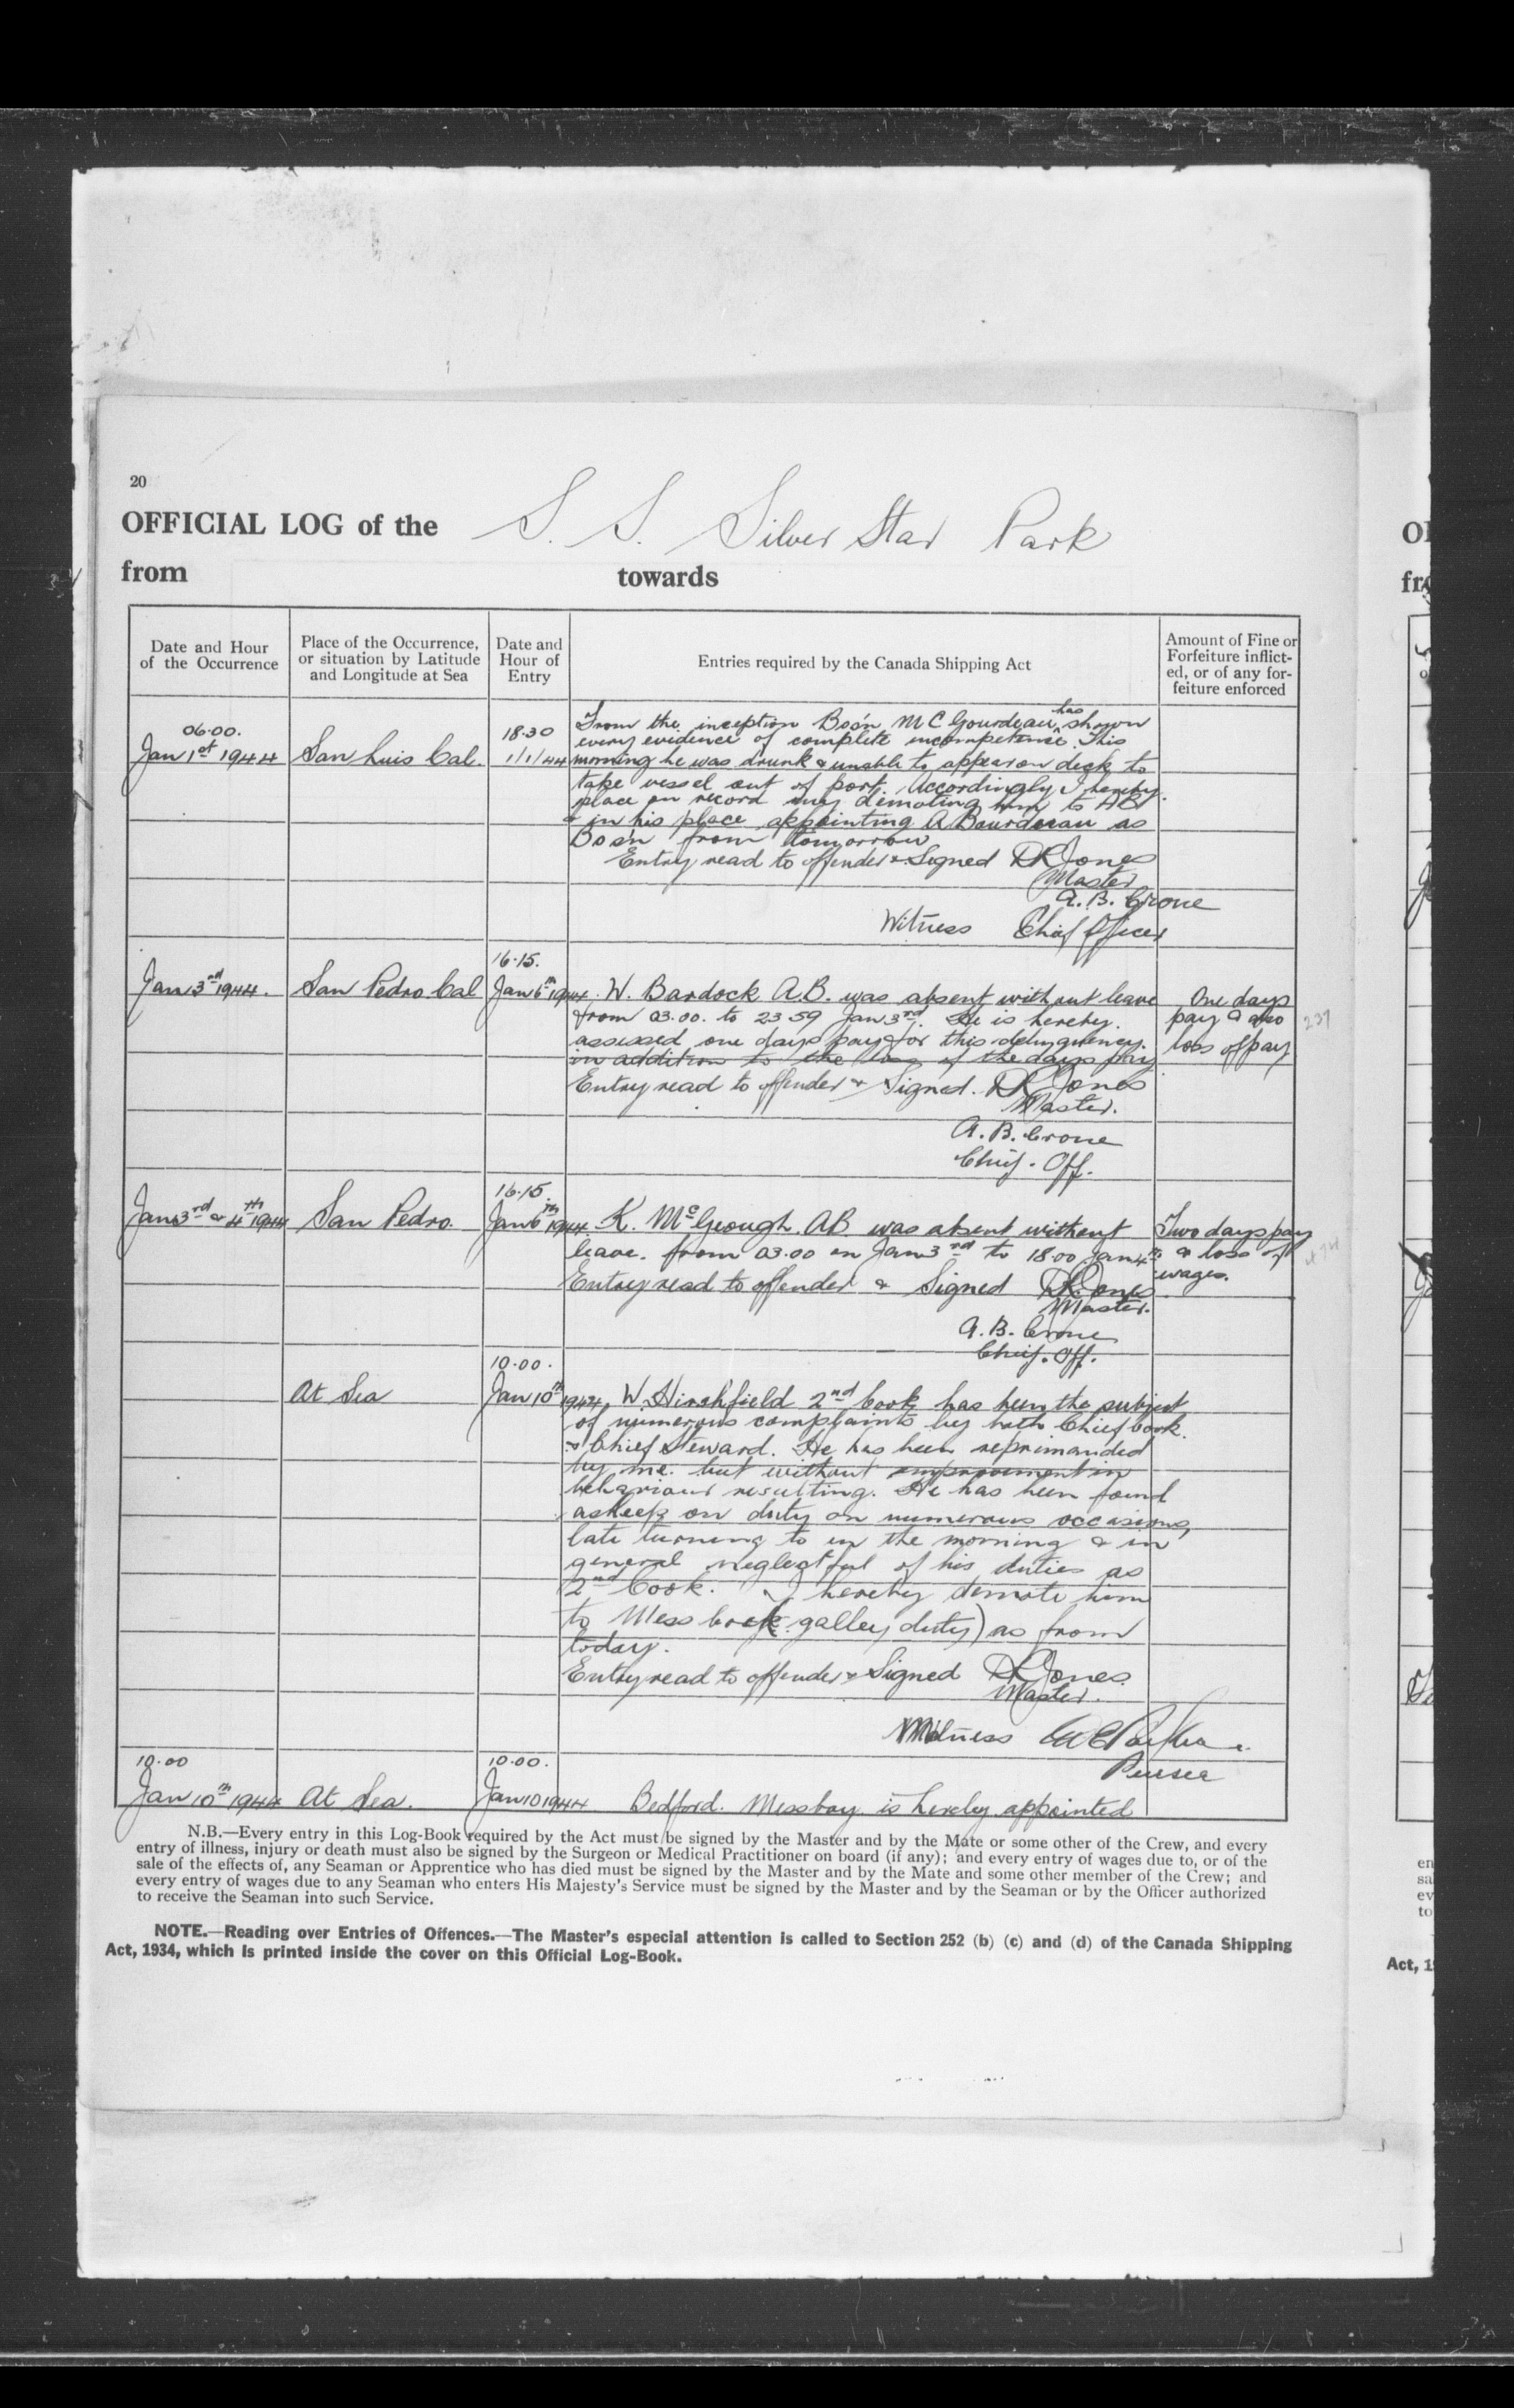 20
OFFICIAL LOG of the S. S. Silver Star Park
from towards
Date and Hour of the Occurrence
Place of the Occurrence, or situation by Latitude and Longitude at Sea
Date and Hour of Entry
Entries required by the Canada Shipping Act
Amount of Fine or Forfeiture inflicted, or of any forfeiture enforced
06.00.
Jan 1st 1944 San Luis Cal. 18.30 1/1/44
From the inception Bos'n M C Gourdeau, has shown
every evidence of complete incompetence. This
morning he was drunk & unable to appear on deck to
take vessel out of port. Accordingly I hereby
place on record my demoting him to AB
& in his place appointing A Bourdeau as
Bos'n from tomorrow
Entry read to offender & Signed DK Jones
Master
A. B. Crone
Witness Chief Officer
16.15.
Jan 3rd 1944. San Pedro Cal Jan 6th 1944. W. Bardock A.B. was absent without leave One days
from 03.00. to 23 59 Jan 3rd. He is hereby pay & also 237
assessed one days pay for this delinquency. loss of pay
in addition to the loss of the days pay
Entry read to offender & Signed. DK Jones
Master.
A. B. Crone
Chief. Off.
16.15.
Jan 3rd & 4th 1944 San Pedro. Jan 6th 1944. K. McGeough. AB was absent without Two days pay
leave. from 03.00 on Jan 3rd to 18.00 Jan 4th & loss of
Entry read to offender & Signed DK Jones wages.
Master.
A. B. Crone
Chief. Off.
10.00.
At Sea Jan 10th 1944. W. Hirshfield 2nd Cook has been the subject
of numerous complaints by both Chief Cook.
& Chief Steward. He has been reprimanded
by me. but without improvement in
behaviour resulting. He has been found
asleep on duty on numerous occasions,
late turning to in the morning & in
general neglectful of his duties as
2nd Cook. I hereby demote him
to Mess galley duty) as from
today.
Entry read to offender & Signed DK Jones.
Master.
Witness
Purser
10.00 10.00.
Jan 10th 1944 At Sea. Jan 10 1944 Bedford. Messboy is hereby appointed
N.B.—Every entry in this Log-Book required by the Act must be signed by the Master and by the Mate or some other of the Crew, and every
entry of illness, injury or death must also be signed by the Surgeon or Medical Practitioner on board (if any); and every entry of wages due to, or of the
sale of the effects of, any Seaman or Apprentice who has died must be signed by the Master and by the Mate and some other member of the Crew; and
every entry of wages due to any Seaman who enters His Majesty's Service must be signed by the Master and by the Seaman or by the Officer authorized
to receive the Seaman into such Service.
NOTE.—Reading over Entries of Offences.—The Master's especial attention is called to Section 252 (b) (c) and (d) of the Canada Shipping
Act, 1934, which is printed inside the cover on this Official Log-Book.